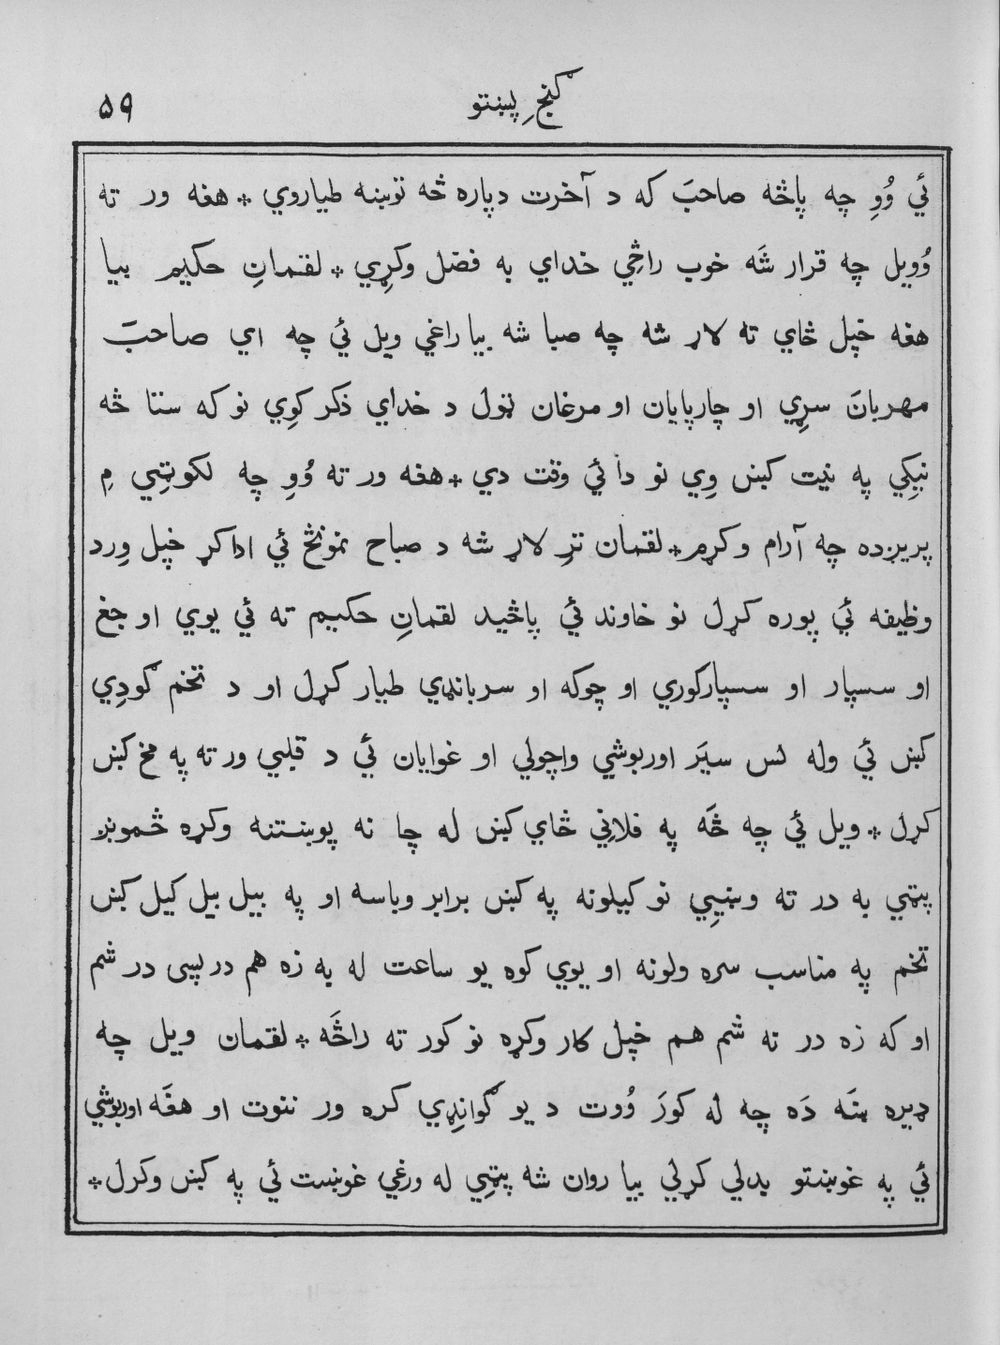 گنجِ پښتو
۵۹
ئي وُوِ چه پاڅه صاحبَ که د آخرت دپاره څه توښه طیاروي * هغه ور ته
وُویل چه قرار شَه خوب راځِي خدای به فضل وکړِي * لقمانِ حکیم بیا
هغه خپل ځاي ته لاړ شه چه صبا شه بیا راغي ویل ئي چه اي صاحبَ
مهربانَ سړِي او چارپایان او مرغان ټول د خدای ذکر کوِي نو که ستا څه
نیکِي په نیت کښ وِي نو دا ئي وقت دي * هغه ور ته وُوِ چه لکوټِي مِ
پریږده چه آرام وکړم * لقمان تړِ لاړ شه د صباح نمونځ ئي ادا کړ خپل وِرد
وظیفه ئي پوره کړل نو خاوند ئي پاڅید لقمانِ حکیم ته ئي یوي او جغ
او سسپار او سسپارکوري او چوکه او سرباندي طیار کړل او د تخم ګودِي
کښ ئي وله لس سیَر اوربوشي واچولي او غوایان ئي د قلبي ور ته په مخ کښ
کړل * ویل ئي چه څَه په فلانِي ځاي کښ له چا نه پوښتنه وکړه څموږ
پټي به در ته وښیِي نو کیلونه په کښ برابر وباسه او په بیل بیل کیل کښ
تخم په مناسب سره ولونه او یوي کوه یو ساعت له په زه هم درپسی در شم
او که زه در ته شم هم خپل کار وکړه نو کور ته راځَه * لقمان ویل چه
ډیره ښَه دَه چه له کورَ وُوت د یو ګوانډِي کره ور ننوت او هغَه اوربوشي
ئي په غوښتو بدلي کړلي بیا روان شه پټِي له ورغي غوښت ئي په کښ وکرل *